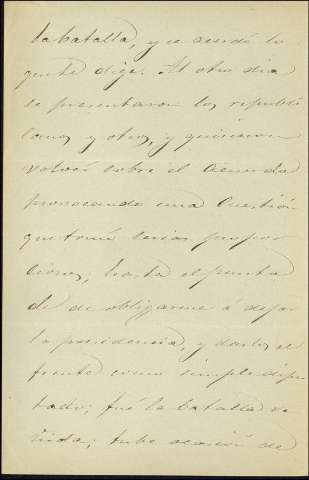 la batalla, y se acordó lo
que te dije. Al otro dia
se presentaron los republi
canos y otros, y quisieron
volver sobre el acuerdo
provocando una cuestión
que tomó serias propor
ciones; hasta el punto
de de obligarme á dejar
la presidencia, y darles el
frente como simple dipu
tado; fué la batalla re
ñida; tube ocasión de